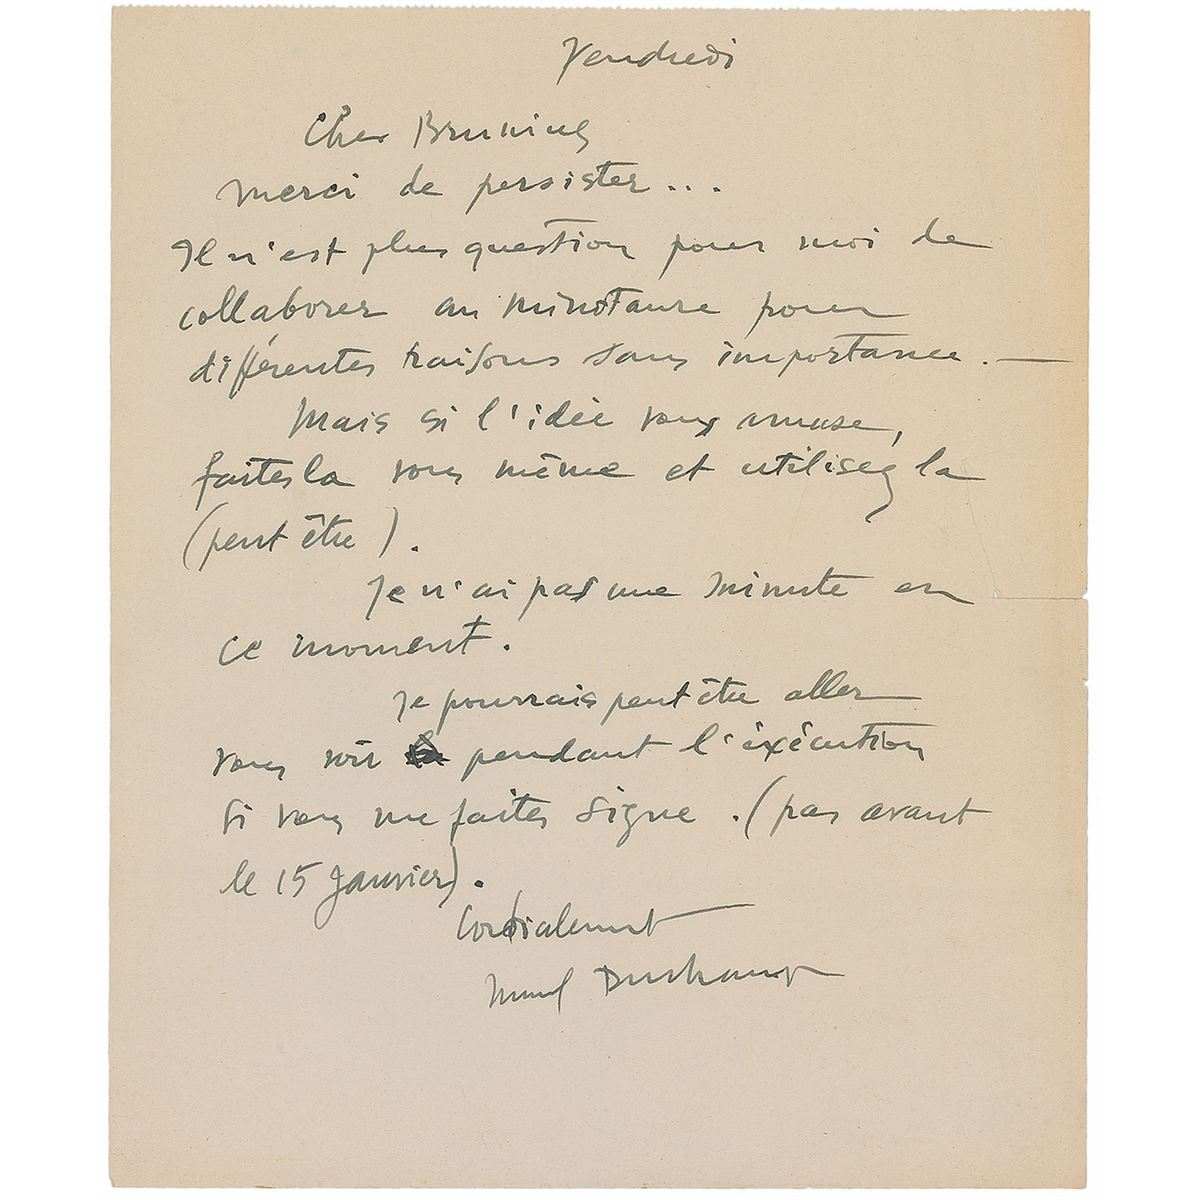 Vendredi
Cher Bruning
merci de persister...
Il n'est plus question pour moi de
collaborer au Minotaure pour
différentes raisons sans importance. —
Mais si l'idée vous amuse,
faites la vous même et utilisez la
(peut être).
Je n'ai pas une minute en
ce moment.
Je pourrais peut être aller
vous voir pendant l'éxécution
si vous me faites signe. (pas avant
le 15 Janvier).
Cordialement
Marcel Duchamp